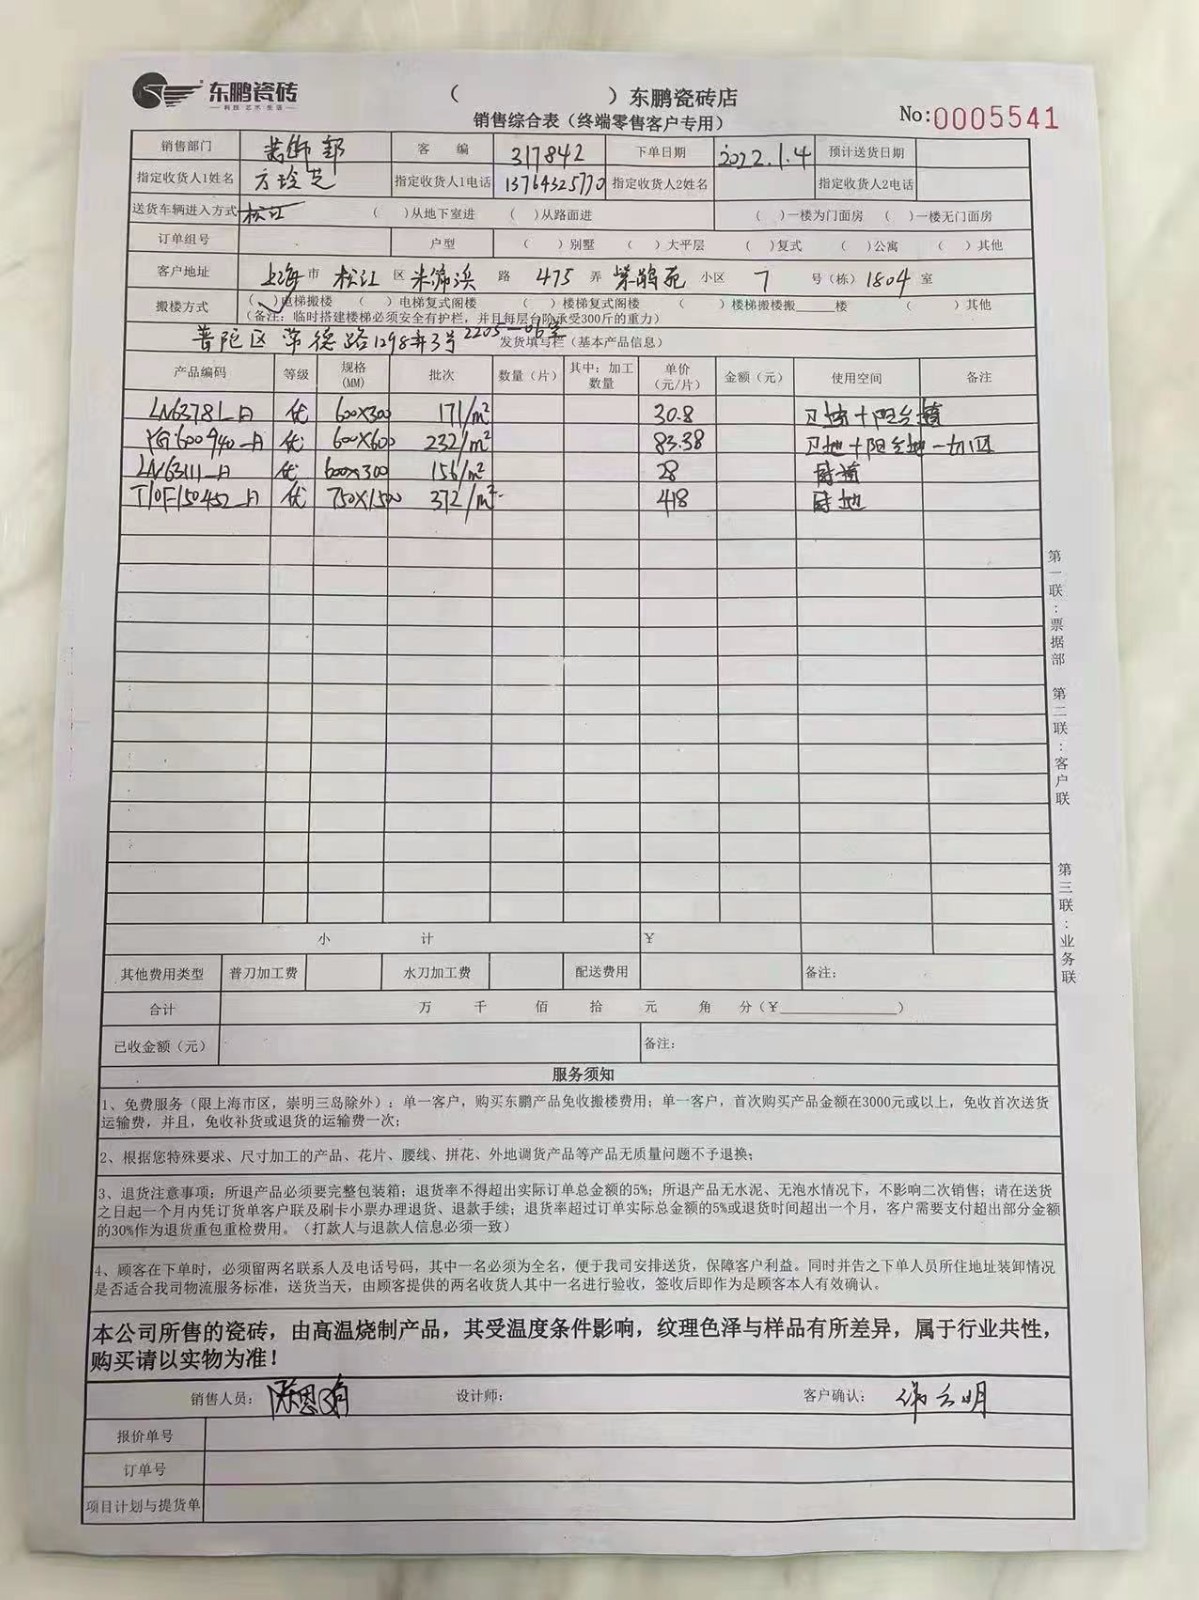 东鹏瓷砖
（ ）东鹏瓷砖店
销售综合表（终端零售客户专用）
No:0005541
销售部门 客 编 317842 下单日期 2022.1.4 预计送货日期
指定收货人1姓名 方玲芝 指定收货人1电话 13764325770 指定收货人2姓名 指定收货人2电话
送货车辆进入方式 松江 （ ）从地下室进 （ ）从路面进 （ ）一楼为门面房 （ ）一楼无门面房
订单组号 户型 （ ）别墅 （ ）大平层 （ ）复式 （ ）公寓 （ ）其他
客户地址 上海 市 松江 区 路 475 弄 紫鹃苑 小区 7 号（栋） 1804 室
搬楼方式 （✓）电梯搬楼 （ ）电梯复式阁楼 （ ）楼梯复式阁楼 （ ）楼梯搬楼搬____楼 （ ）其他
（备注：临时搭建楼梯必须安全有护栏，并且每层台阶承受300斤的重力）
普陀区常德路1298弄3号2205-06室 发货填写栏（基本产品信息）
产品编码 等级 规格(MM) 批次 数量（片） 其中：加工数量 单价（元/片） 金额（元） 使用空间 备注
LN63781-A 优 600X300 171/m² 30.8 卫墙+阳台墙
YG600940-A 优 600X600 232/m² 83.38 卫地+阳台地
LN63111-A 优 600x300 156/m² 28 厨墙
T10F150452-A 优 750X1500 372/m² 418 厨地
小 计 ¥
其他费用类型 普刀加工费 水刀加工费 配送费用 备注：
合计 万 千 佰 拾 元 角 分（¥________）
已收金额（元） 备注：
服务须知
1、免费服务（限上海市区，崇明三岛除外）：单一客户，购买东鹏产品免收搬楼费用；单一客户，首次购买产品金额在3000元或以上，免收首次送货
运输费，并且，免收补货或退货的运输费一次；
2、根据您特殊要求、尺寸加工的产品、花片、腰线、拼花、外地调货产品等产品无质量问题不予退换；
3、退货注意事项：所退产品必须要完整包装箱；退货率不得超出实际订单总金额的5%；所退产品无水泥、无泡水情况下，不影响二次销售；请在送货
之日起一个月内凭订货单客户联及刷卡小票办理退货、退款手续；退货率超过订单实际总金额的5%或退货时间超出一个月，客户需要支付超出部分金额
的30%作为退货重包重检费用。（打款人与退款人信息必须一致）
4、顾客在下单时，必须留两名联系人及电话号码，其中一名必须为全名，便于我司安排送货，保障客户利益。同时并告之下单人员所住地址装卸情况
是否适合我司物流服务标准，送货当天，由顾客提供的两名收货人其中一名进行验收，签收后即作为是顾客本人有效确认。
本公司所售的瓷砖，由高温烧制产品，其受温度条件影响，纹理色泽与样品有所差异，属于行业共性，
购买请以实物为准！
销售人员： 设计师： 客户确认：
报价单号
订单号
项目计划与提货单
第一联：票据部
第二联：客户联
第三联：业务联